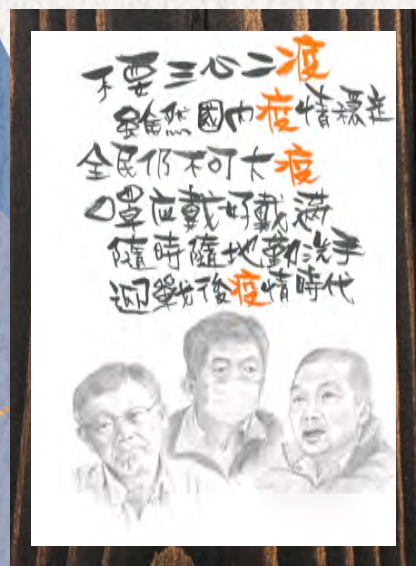 不要三心二疫
雖然國內疫情穩定
全民仍不可大疫
口罩應戴好戴滿
隨時隨地勤洗手
迎戰後疫情時代